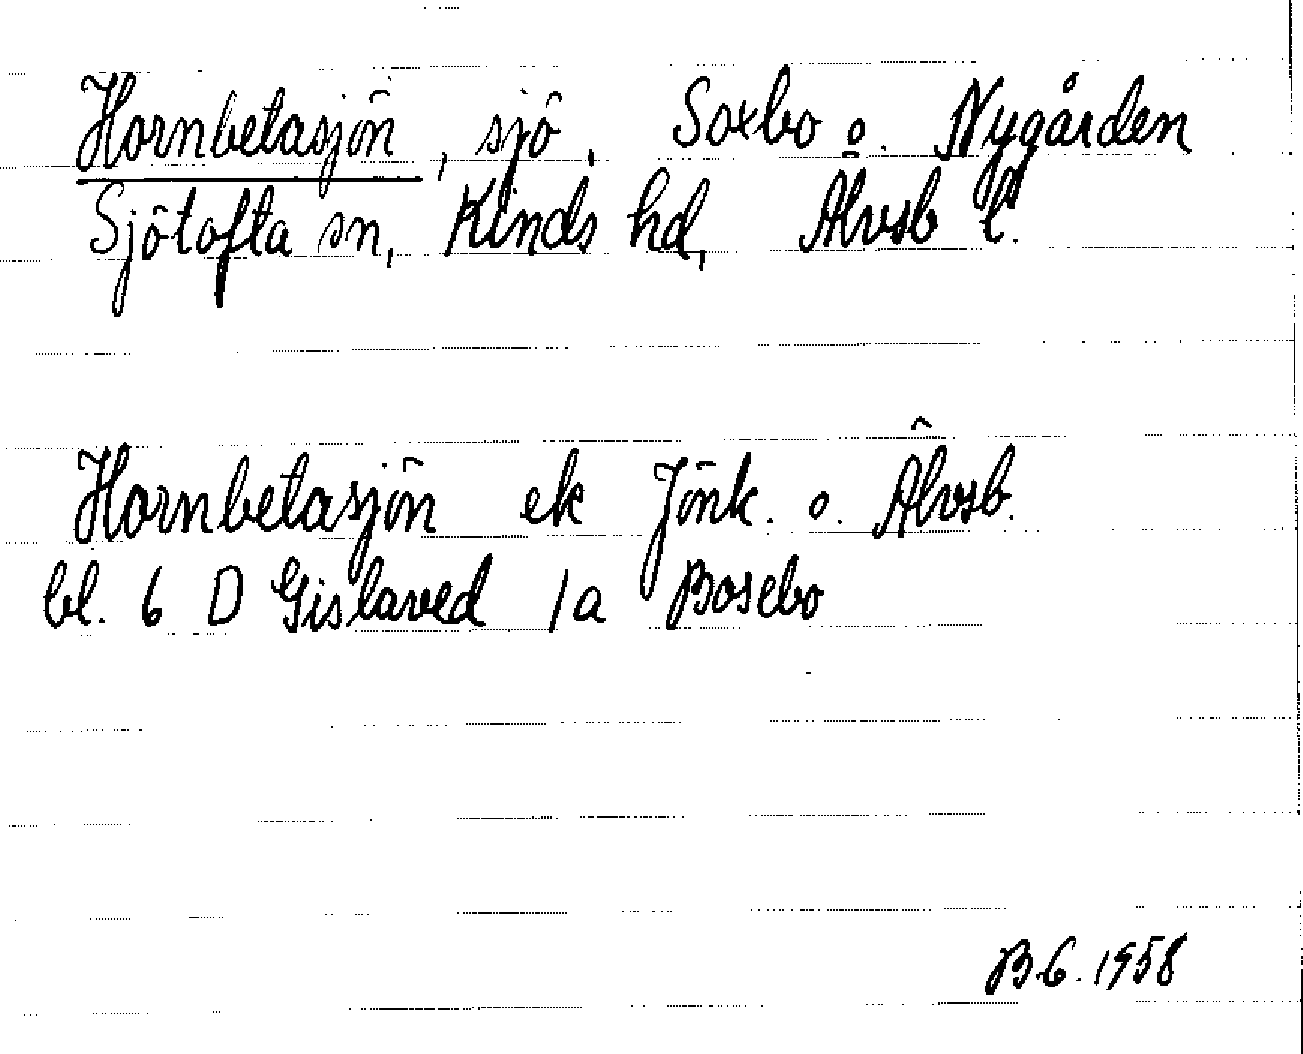 Hornbetasjön, sjö, Soxbo o. Nygården
Sjötofta sn, Kinds hd, Älvsb l.
Hornbetasjön ek Jönk. o. Älvsb.
bl. 6 D Gislaved 1a Bosebo
B.G. 1958